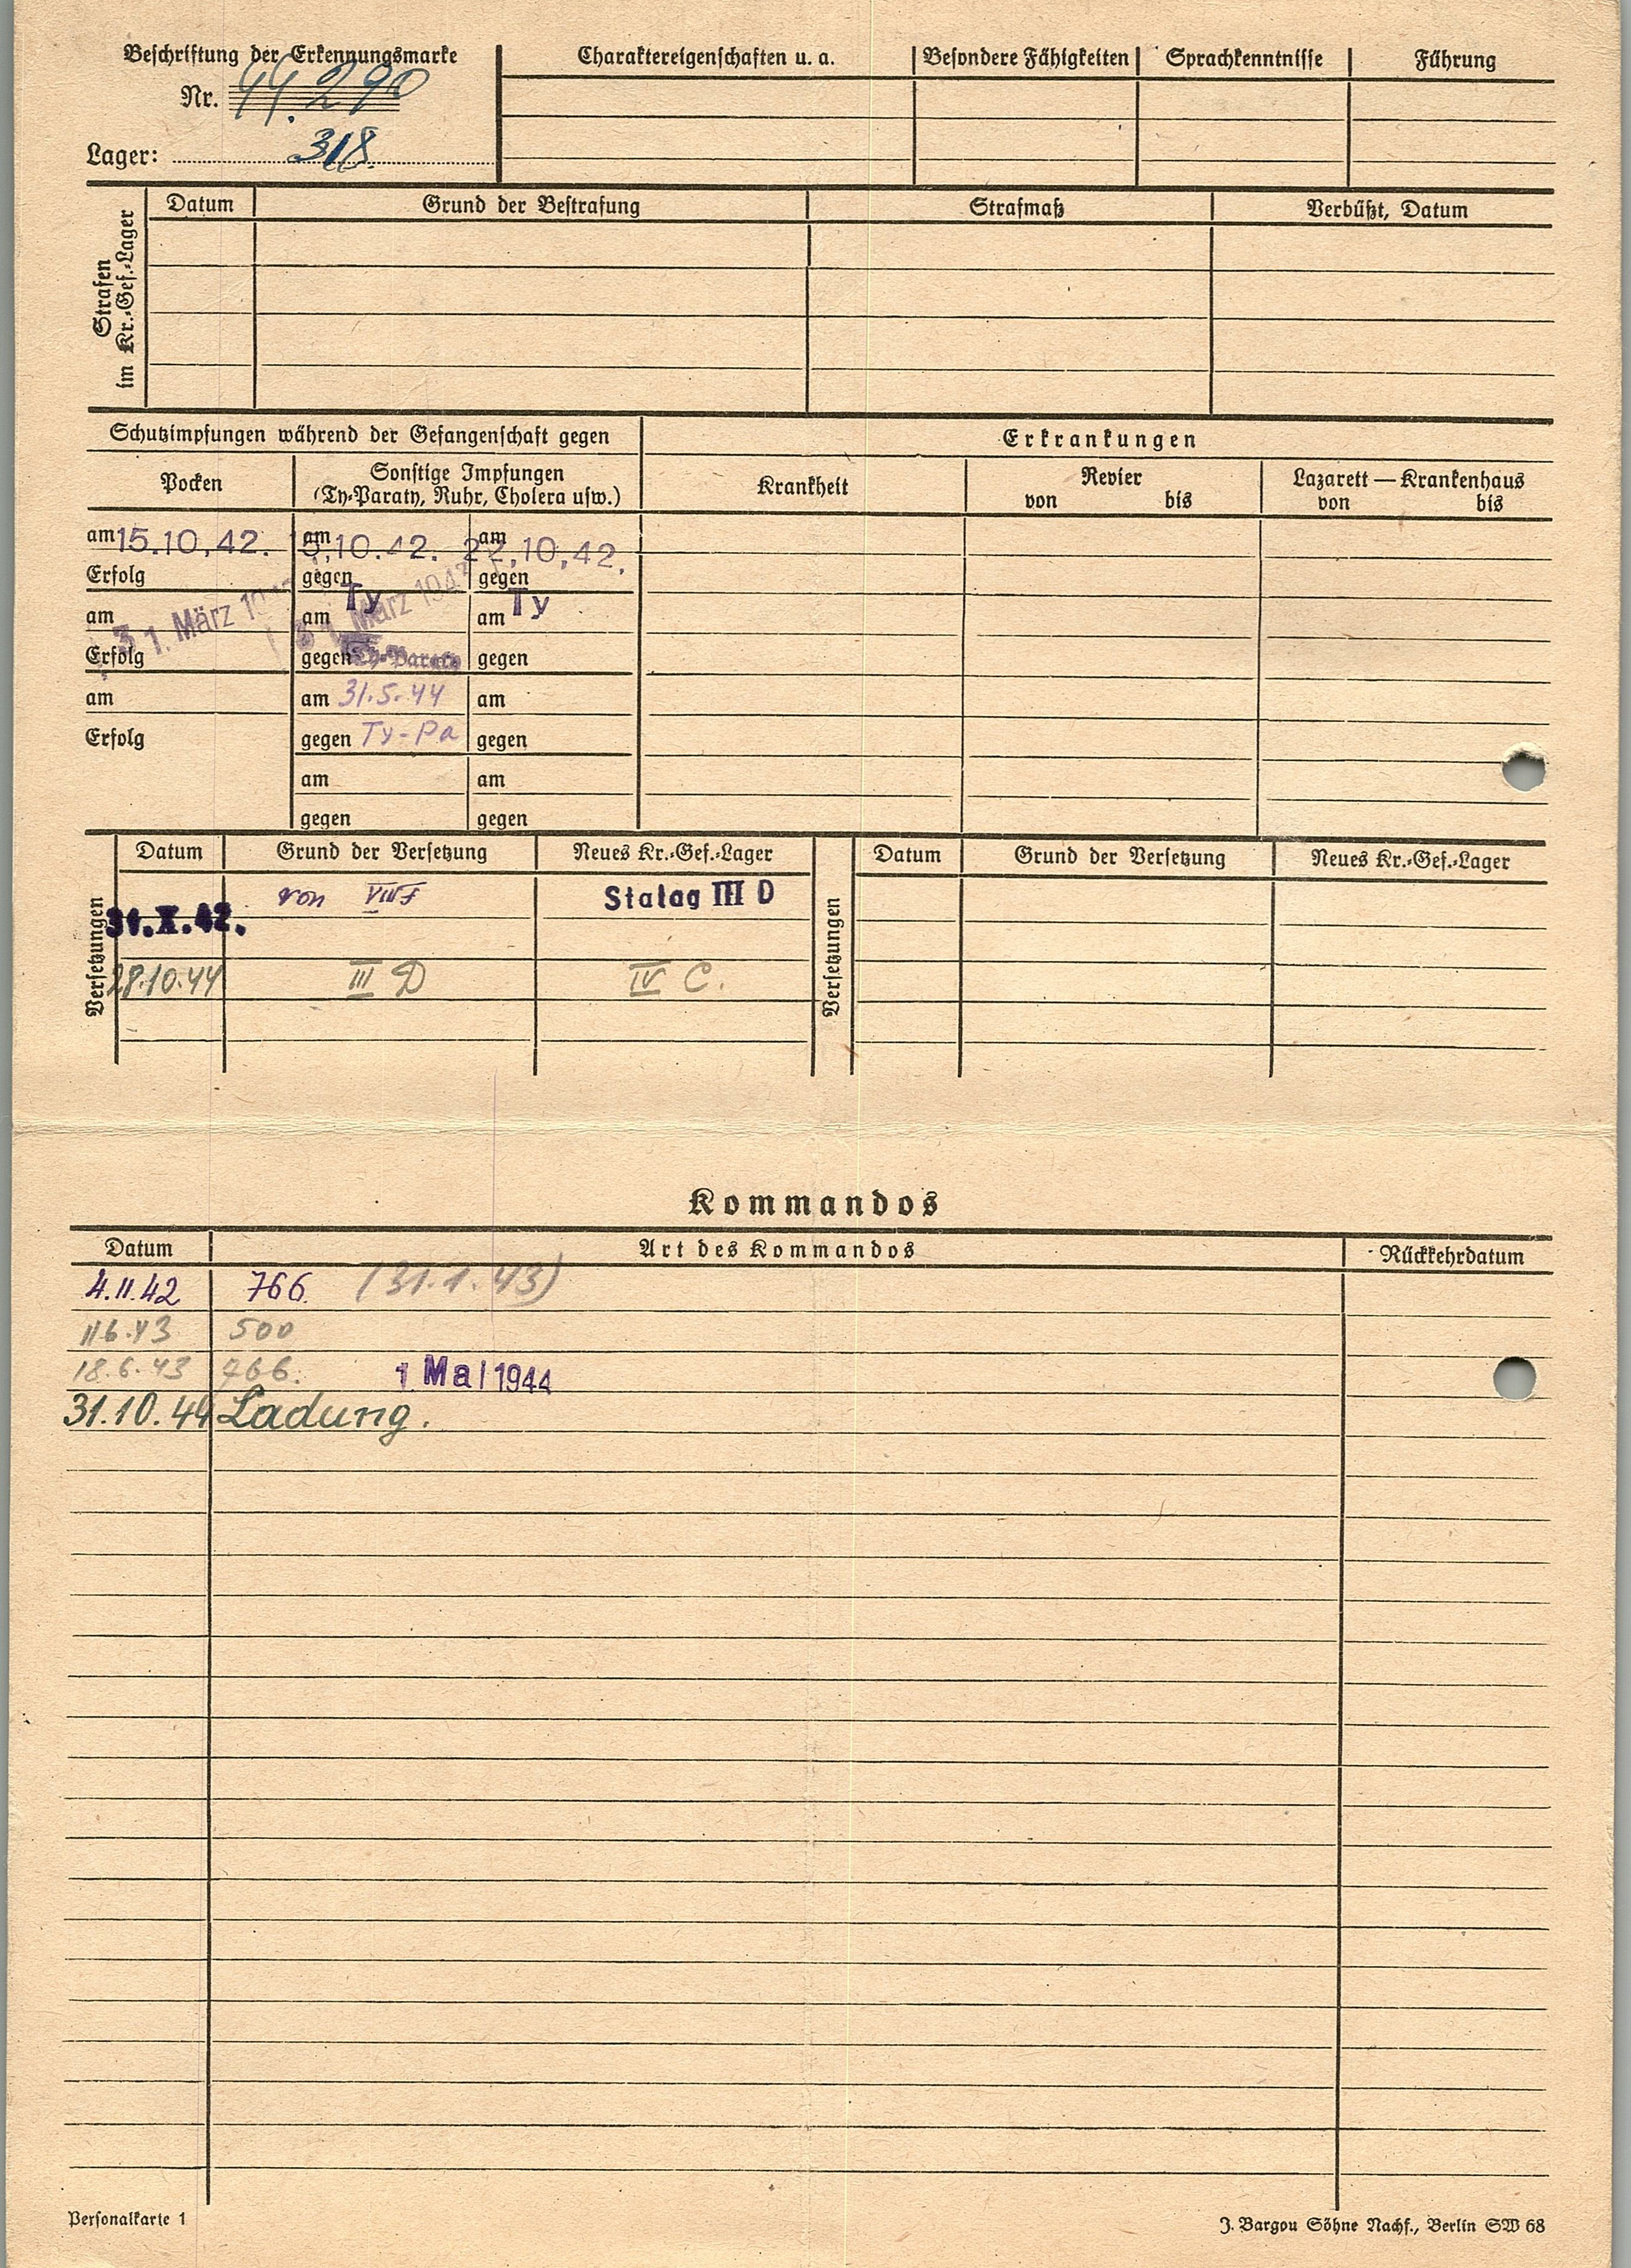 Beschriftung der Erkennungsmarke
Nr. 44.290
Lager: 318
Charaktereigenschaften u. a. Besondere Fähigkeiten Sprachkenntnisse Führung
Strafen im Kr.-Gef.-Lager
Datum Grund der Bestrafung Strafmaß Verbüßt, Datum
Schutzimpfungen während der Gefangenschaft gegen
Erkrankungen
Pocken
Sonstige Impfungen
(Ty-Paraty, Ruhr, Cholera usw.)
Krankheit
Revier
von bis
Lazarett — Krankenhaus
von bis
am 15.10.42. am 15.10.42. am 22.10.42.
Erfolg gegen Ty gegen Ty
am 31. März am 31. März am
Erfolg gegen Ty-Paraty gegen
am am 31.5.44 am
Erfolg gegen Ty-Pa gegen
am am
gegen gegen
Versetzungen
Datum Grund der Versetzung Neues Kr.-Gef.-Lager
31.X.42. von VIII F Stalag III D
28.10.44 III D IV C.
Versetzungen
Datum Grund der Versetzung Neues Kr.-Gef.-Lager
Kommandos
Datum Art des Kommandos Rückkehrdatum
4.11.42 766. (31.1.43)
11.6.43 500
18.6.43 766. 1. Mai 1944
31.10.44 Ladung.
Personalkarte 1
J. Bargou Söhne Nachf., Berlin SW 68